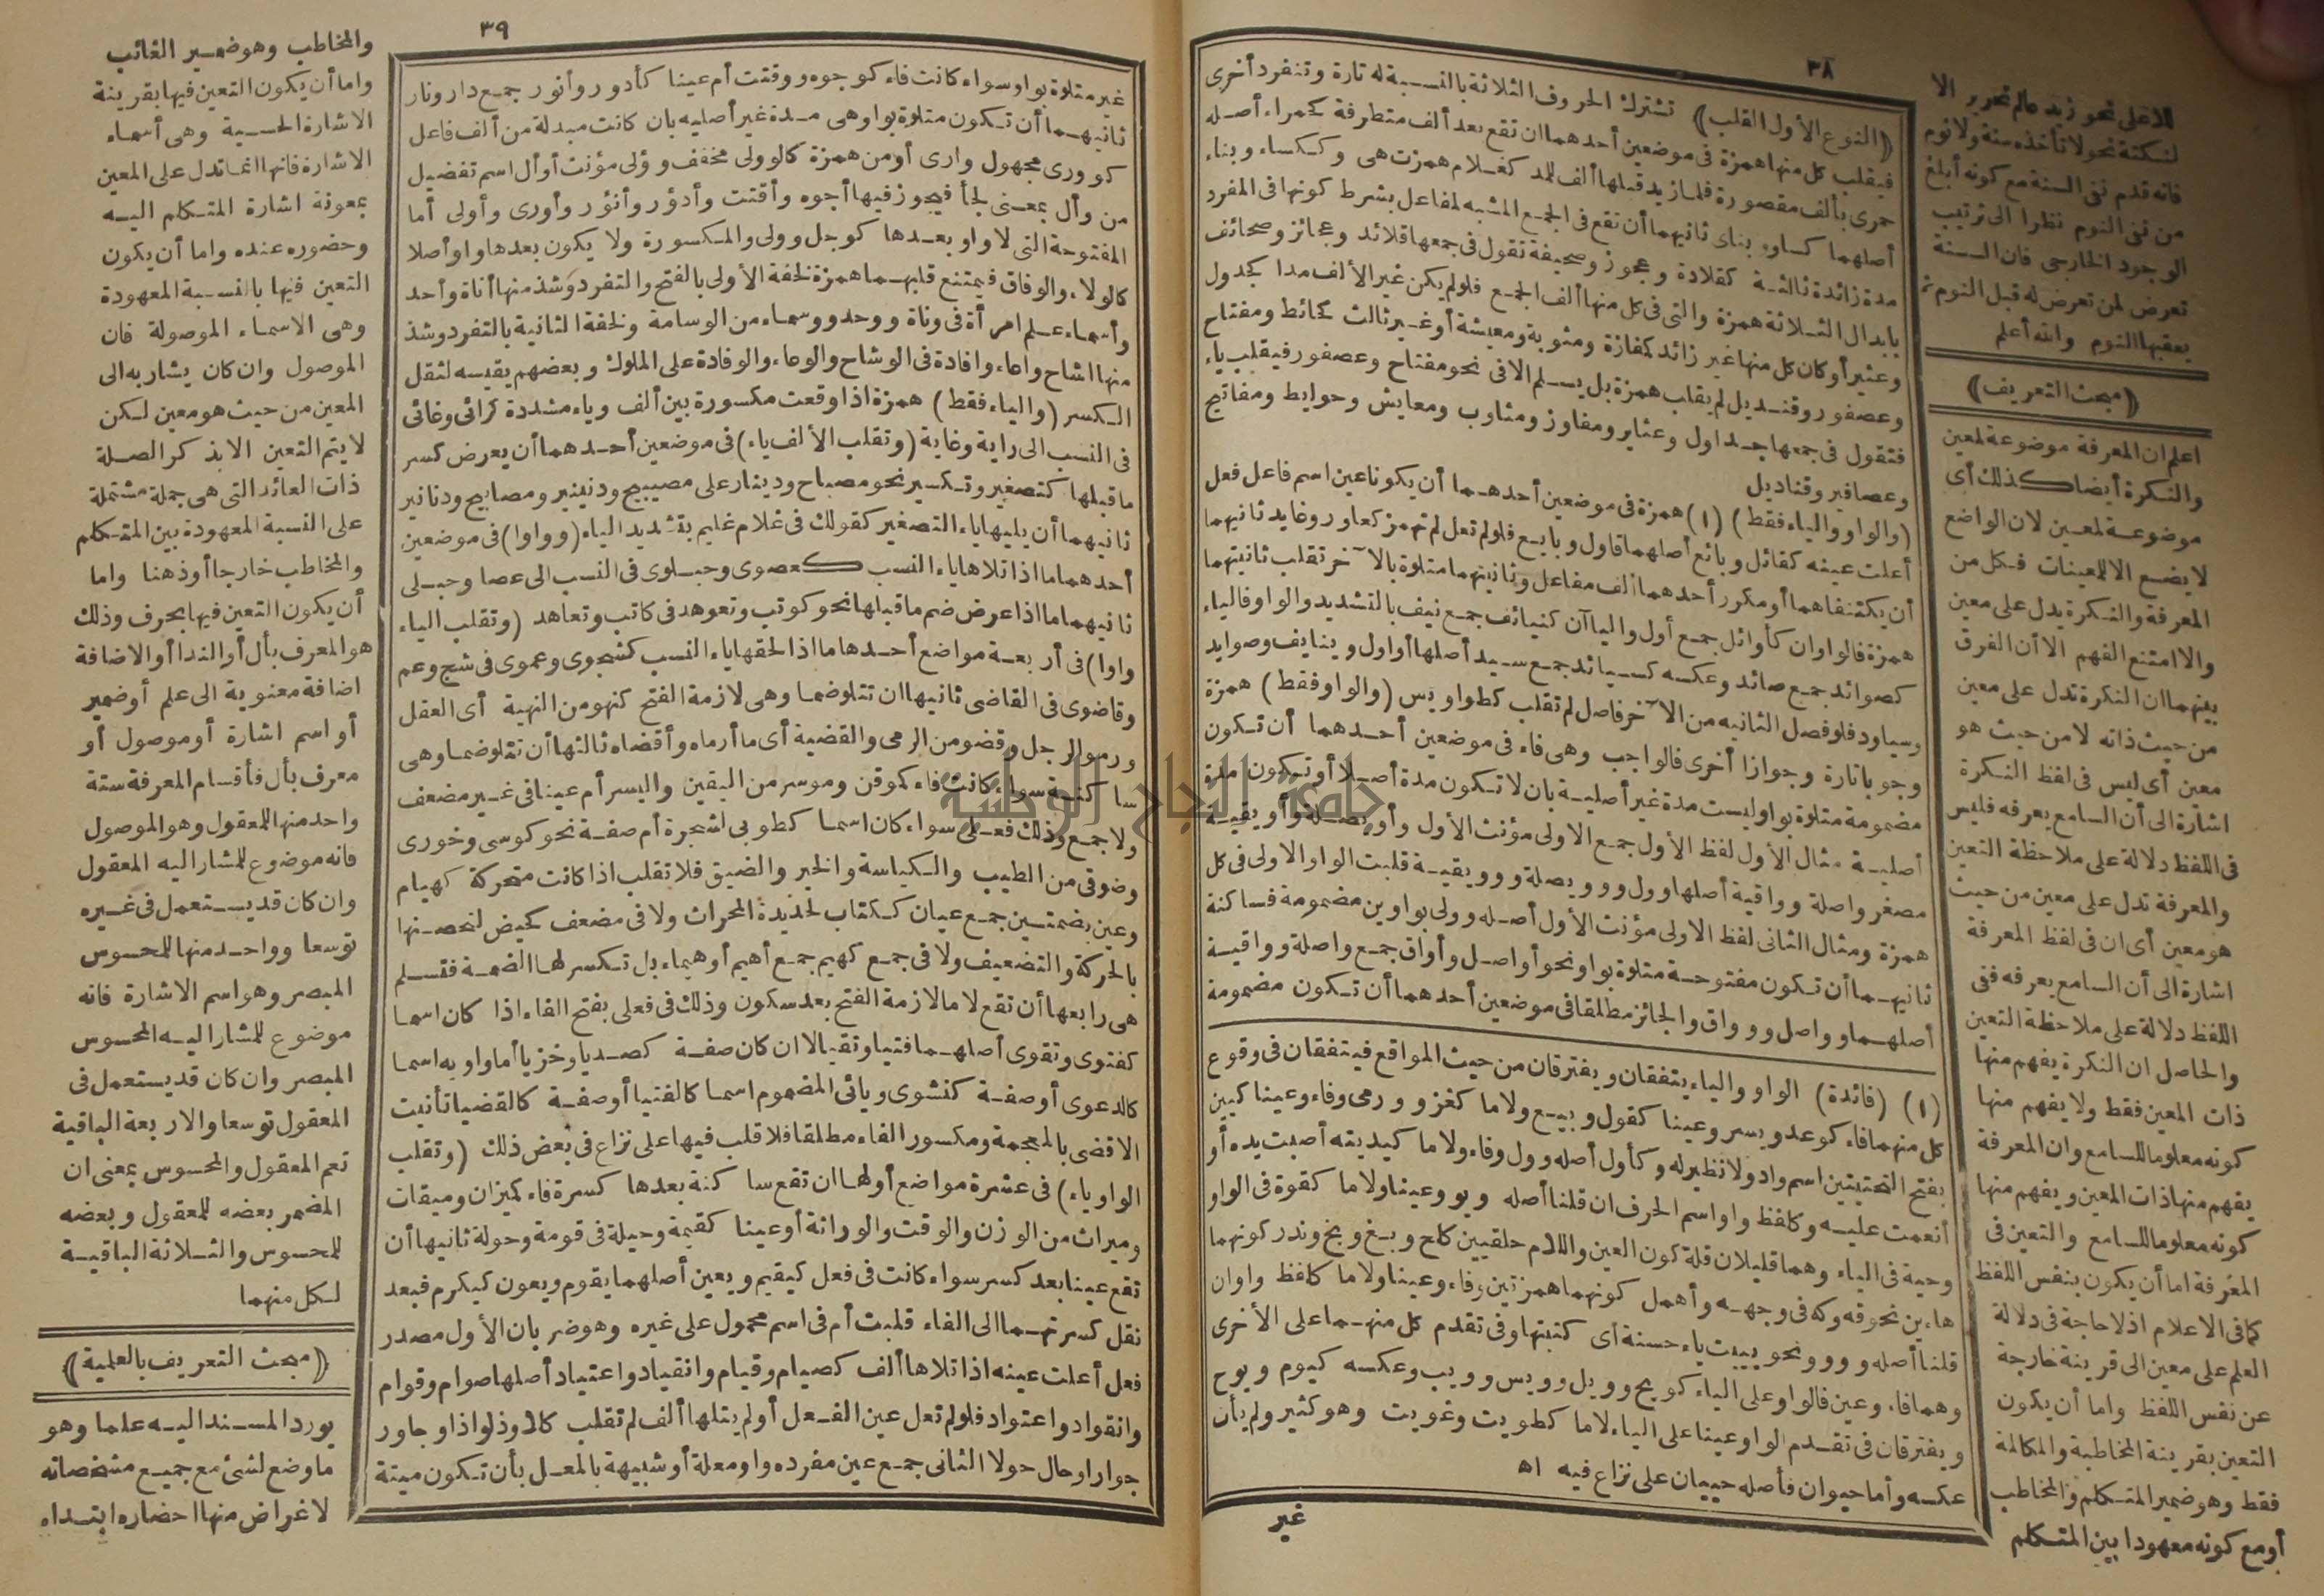 ٣٨
﴿النوع الأول القلب﴾ تشترك الحروف الثلاثة بالنسبة له تارة وتنفرد أخرى
فيقلب كل منها همزة فى موضعين أحدهما ان تقع بعد ألف متطرفة كحمراء أصله
حمرى بألف مقصورة فلما زيد قبلها ألف للمد كغلام همزت هى وككساء وبناء
أصلهما كساو وبناى ثانيهما أن تقع فى الجمع المشبه لمفاعل بشرط كونها فى المفرد
مدة زائدة ثالثة كقلادة وعجوز وصحيفة تقول فى جمعها قلائد وعجائز وصحائف
بابدال الثلاثة همزة والتى فى كل منها ألف الجمع فلو لم يكن غير الألف مدا كجدول
وعثير أو كان كل منها غير زائد كمفازة ومثوبة ومعيشة أو غير ثالث كحائط ومفتاح
وعصفور وقنديل لم يقلب همزة بل يسلم الا فى نحو مفتاح وعصفور فيقلب ياء
فتقول فى جمعها جداول وعثاير ومفاوز ومثاوب ومعايش وحوايط ومفاتيح
وعصافير وقناديل
(والواو والياء فقط) (١) همزة فى موضعين أحدهما أن يكونا عين اسم فاعل فعل
أعلت عينه كقائل وبائع أصلهما قاول وبايع فلو لم تعل لم تهمز كعاور وغايد ثانيهما
أن يكتنفاهما أو مكرر أحدهما ألف مفاعل وثانيتهما متلوة بالآخر تقلب ثانيتهما
همزة فالواوان كأوائل جمع أول والياآن كنيائف جمع نيف بالتشديد والواو فالياء
كصوائد جمع صائد وعكسه كسيائد جمع سيد أصلها أواول ونيايف وصوايد
وسياود فلو فصل الثانيه من الآخر فاصل لم تقلب كطواويس (والواو فقط) همزة
وجوبا تارة وجوازا أخرى فالواجب وهى فاء فى موضعين أحدهما أن تكون
مضمومة متلوة بواو ليست مدة غير أصلية بان لا تكون مدة أصلا أو تكون مدة
أصلية مثال الأول لفظ الأول جمع الاولى مؤنث الأول وأويصلة وأويقية
مصغر واصلة وواقية أصلها وول وويصلة وويقية قلبت الواو الاولى فى كل
همزة ومثال الثانى لفظ الاولى مؤنث الأول أصله وولى بواوين مضمومة فساكنة
ثانيهما أن تكون مفتوحة متلوة بواو نحو أواصل وأواق جمع واصلة وواقية
أصلهما وواصل وواق والجائز مطلقا فى موضعين أحدهما أن تكون مضمومة
(١) (فائدة) الواو والياء يتفقان ويفترقان من حيث المواقع فيتفقان فى وقوع
كل منهما فاء كوعد ويسر وعينا كقول وبيع ولاما كغزو ورمى وفاء وعينا كيين
بفتح التحتيتين اسم واد ولا نظير له وكأول أصله وول وفاء ولاما كيديته أصبت يده أو
أنعمت عليه وكلفظ واو اسم الحرف ان قلنا أصله ويو وعينا ولاما كقوة فى الواو
وحية فى الياء وهما قليلان قلة كون العين واللام حلقيين كلح وبغ وبخ وندر كونهما
هاءين نحو قه وكه فى وجهه وأهمل كونهما همزتين وفاء وعينا ولاما كلفظ واوان
قلنا أصله ووو ونحو ييبت ياء حسنة أى كتبتها وفى تقدم كل منهما على الأخرى
وهما فاء وعين فالواو على الياء كويح وويل وويس وويب وعكسه كيوم ويوح
ويفترقان فى تقدم الواو عينا على الياء لاما كطويت وغويت وهو كثير ولم يأت
عكسه وأما حيوان فأصله حييان على نزاع فيه اه
غير
للاعلى نحو زيد عالم تحرير الا
لنكتة نحو لا تأخذه سنة ولا نوم
فانه قدم نفى السنة مع كونه أبلغ
من نفى النوم نظرا الى ترتيب
الوجود الخارجى فان السنة
تعرض لمن تعرض له قبل النوم ثم
يعقبها النوم والله أعلم
﴿مبحث التعريف﴾
اعلم ان المعرفة موضوعة لمعين
والنكرة أيضا كذلك أى
موضوعة لمعين لان الواضع
لا يضع الا للمعينات فكل من
المعرفة والنكرة يدل على معين
والا امتنع الفهم الا أن الفرق
بينهما ان النكرة تدل على معين
من حيث ذاته لا من حيث هو
معين أى ليس فى لفظ النكرة
اشارة الى أن السامع يعرفه فليس
فى اللفظ دلالة على ملاحظة التعين
والمعرفة تدل على معين من حيث
هو معين أى ان فى لفظ المعرفة
اشارة الى أن السامع يعرفه ففى
اللفظ دلالة على ملاحظة التعين
والحاصل ان النكرة يفهم منها
ذات المعين فقط ولا يفهم منها
كونه معلوما للسامع وان المعرفة
يفهم منها ذات المعين ويفهم منها
كونه معلوما للسامع والتعين فى
المعرفة اما أن يكون بنفس اللفظ
كما فى الاعلام اذ لا حاجة فى دلالة
العلم على معين الى قرينة خارجة
عن نفس اللفظ واما أن يكون
التعين بقرينة المخاطبة والمكالمة
فقط وهو ضمير المتكلم والمخاطب
أو مع كونه معهودا بين المتكلم
٣٩
غير متلوة بواو سواء كانت فاء كوجوه ووقتت أم عينا كأدور وأنور جمع دار ونار
ثانيهما أن تكون متلوة بواو وهى مدة غير أصليه بان كانت مبدلة من ألف فاعل
كوورى مجهول وارى أو من همزة كالوولى مخفف وؤلى مؤنث أوأل اسم تفضيل
من وأل بمعنى لجأ فيجوز فيها أجوه وأقتت وأدؤر وأنؤر وأورى وأولى أما
المفتوحة التى لا واو بعدها كوجل وولى والمكسورة ولا يكون بعدها واو أصلا
كالولاء والوفاق فيمتنع قلبهما همزة لخفة الأولى بالفتح والتفرد وشذ منها أناة وأحد
وأسماء علم امرأة فى وناة ووحد ووسماء من الوسامة ولخفة الثانية بالتفرد وشذ
منها اشاح واعاء وافادة فى الوشاح والوعاء والوفادة على الملوك وبعضهم يقيسه لثقل
الكسر (والياء فقط) همزة اذا وقعت مكسورة بين ألف وياء مشددة كرائى وغائى
فى النسب الى راية وغاية (وتقلب الألف ياء) فى موضعين أحدهما أن يعرض كسر
ما قبلها كتصغير وتكسير نحو مصباح ودينار على مصيبيح ودنينير ومصابيح ودنانير
ثانيهما أن يليها ياء التصغير كقولك فى غلام غليم بتشديد الياء (وواوا) فى موضعين
أحدهما ما اذا تلاها ياء النسب كعصوى وحبلوى فى النسب الى عصا وحبلى
ثانيهما ما اذا عرض ضم ما قبلها نحو كوتب وتعوهد فى كاتب وتعاهد (وتقلب الياء
واوا) فى أربعة مواضع أحدها ما اذا لحقها ياء النسب كشجوى وعموى فى شج وعم
وقاضوى فى القاضى ثانيها ان تتلو ضما وهى لازمة الفتح كنهو من النهية أى العقل
ورمو الرجل وقضو من الرمى والقضية أى ما أرماه وأقضاه ثالثها أن تتلو ضما وهى
ساكنة سواء كانت فاء كموقن وموسر من اليقين واليسر أم عينا فى غير مضعف
ولا جمع وذلك فعلى سواء كان اسما كطوبى لشجرة أم صفة نحو كوسى وخورى
وضوقى من الطيب والكياسة والخير والضيق فلا تقلب اذا كانت متحركة كهيام
وعين بضمتين جمع عيان ككتاب لحديدة المحراث ولا فى مضعف كحيض لتحصنها
بالحركة والتضعيف ولا فى جمع كهيم جمع أهيم أو هيماء بل تكسر لها الضمة فتسلم
هى رابعها أن تقع لاما لازمة الفتح بعد سكون وذلك فى فعلى بفتح الفاء اذا كان اسما
كفتوى وتقوى أصلهما فتيا وتقيا لا ان كان صفة كصديا وخزيا أما واويه اسما
كالدعوى أو صفة كنشوى ويائى المضموم اسما كالفتيا أو صفة كالقضيا تأنيث
الاقضى بالمعجمة ومكسور الفاء مطلقا فلا قلب فيها على نزاع فى بعض ذلك (وتقلب
الواو ياء) فى عشرة مواضع أولها ان تقع ساكنة بعدها كسرة فاء كميزان وميقات
وميراث من الوزن والوقت والوراثة أو عينا كقيمة وحيلة فى قومة وحولة ثانيها أن
تقع عينا بعد كسر سواء كانت فى فعل كيقيم ويعين أصلهما يقوم ويعون كيكرم فبعد
نقل كسرتهما الى الفاء قلبت أم فى اسم محمول على غيره وهو ضربان الأول مصدر
فعل أعلت عينه اذا تلاها ألف كصيام وقيام وانقياد واعتياد أصلها صوام وقوام
وانقواد واعتواد فلو لم تعل عين الفعل أو لم يتلها ألف لم تقلب كلاوذ لواذا وجاور
جوارا وحال حولا الثانى جمع عين مفرده واو معلة أو شبيهة بالمعل بأن تكون ميتة
والمخاطب وهو ضمير الغائب
واما أن يكون التعين فيها بقرينة
الاشارة الحسية وهى أسماء
الاشارة فانها انما تدل على المعين
بمعونة اشارة المتكلم اليه
وحضوره عنده واما أن يكون
التعين فيها بالنسبة المعهودة
وهى الاسماء الموصولة فان
الموصول وان كان يشار به الى
المعين من حيث هو معين لكن
لا يتم التعين الا بذكر الصلة
ذات العائد التى هى جملة مشتملة
على النسبة المعهودة بين المتكلم
والمخاطب خارجا أو ذهنا واما
أن يكون التعين فيها بحرف وذلك
هو المعرف بأل أو الندا أو الاضافة
اضافة معنوية الى علم أو ضمير
أو اسم اشارة أو موصول أو
معرف بأل فأقسام المعرفة ستة
واحد منها للمعقول وهو الموصول
فانه موضوع للمشار اليه المعقول
وان كان قد يستعمل فى غيره
توسعا وواحد منها للمحسوس
المبصر وهو اسم الاشارة فانه
موضوع للمشار اليه المحسوس
المبصر وان كان قد يستعمل فى
المعقول توسعا والاربعة الباقية
تعم المعقول والمحسوس بمعنى ان
المضمر بعضه للمعقول وبعضه
للمحسوس والثلاثة الباقية
لكل منهما
﴿مبحث التعريف بالعلمية﴾
يورد المسند اليه علما وهو
ما وضع لشئ مع جميع مشخصاته
لاغراض منها احضاره ابتداء
جامعة النجاح الوطنية